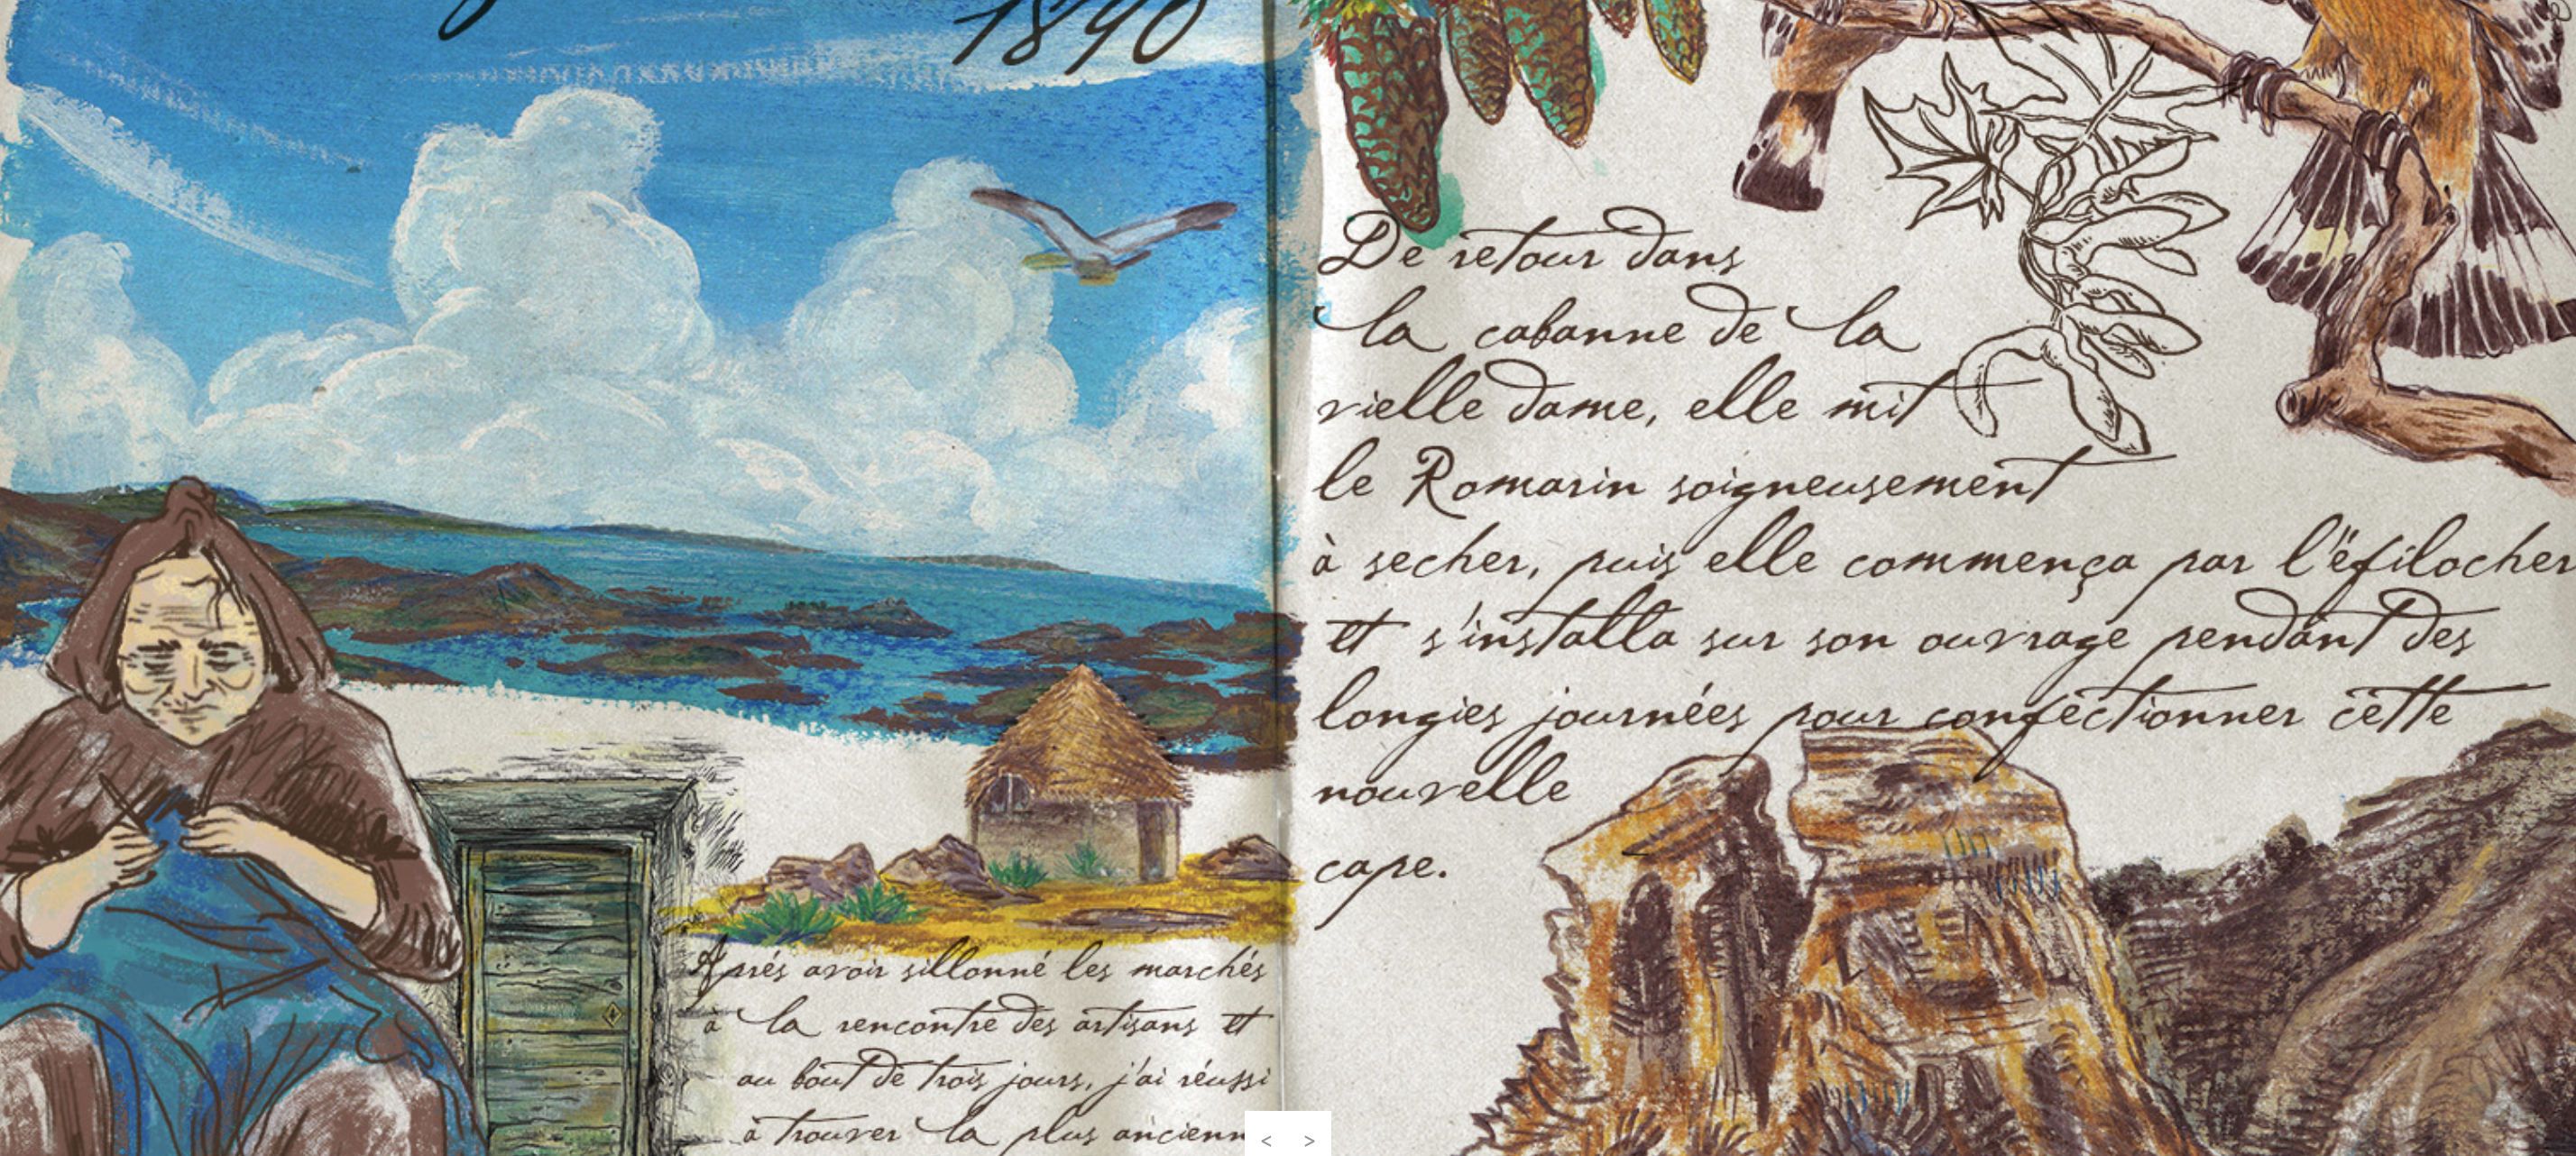 1890
Aprés avoir sillonné les marchés
à la rencontre des artisans et
au bout de trois jours, j'ai réussi
à trouver la plus ancienn
De retour dans
la cabanne de la
vielle dame, elle mit
le Romarin soigneusement
à secher, puis elle commença par l'éfilocher
et s'installa sur son ouvrage pendant des
longies journées pour confectionner cette
nouvelle
cape.
< >